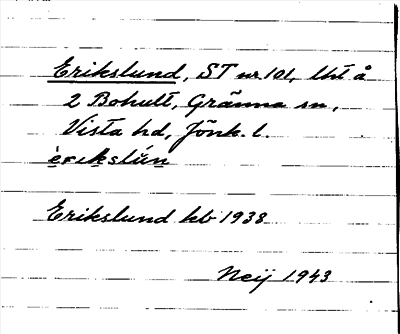 Erikslund, ST nr 101, lht å
2 Bohult, Gränna sn,
Vista hd, Jönk. l.
Erikslund kb 1938
Neij 1943